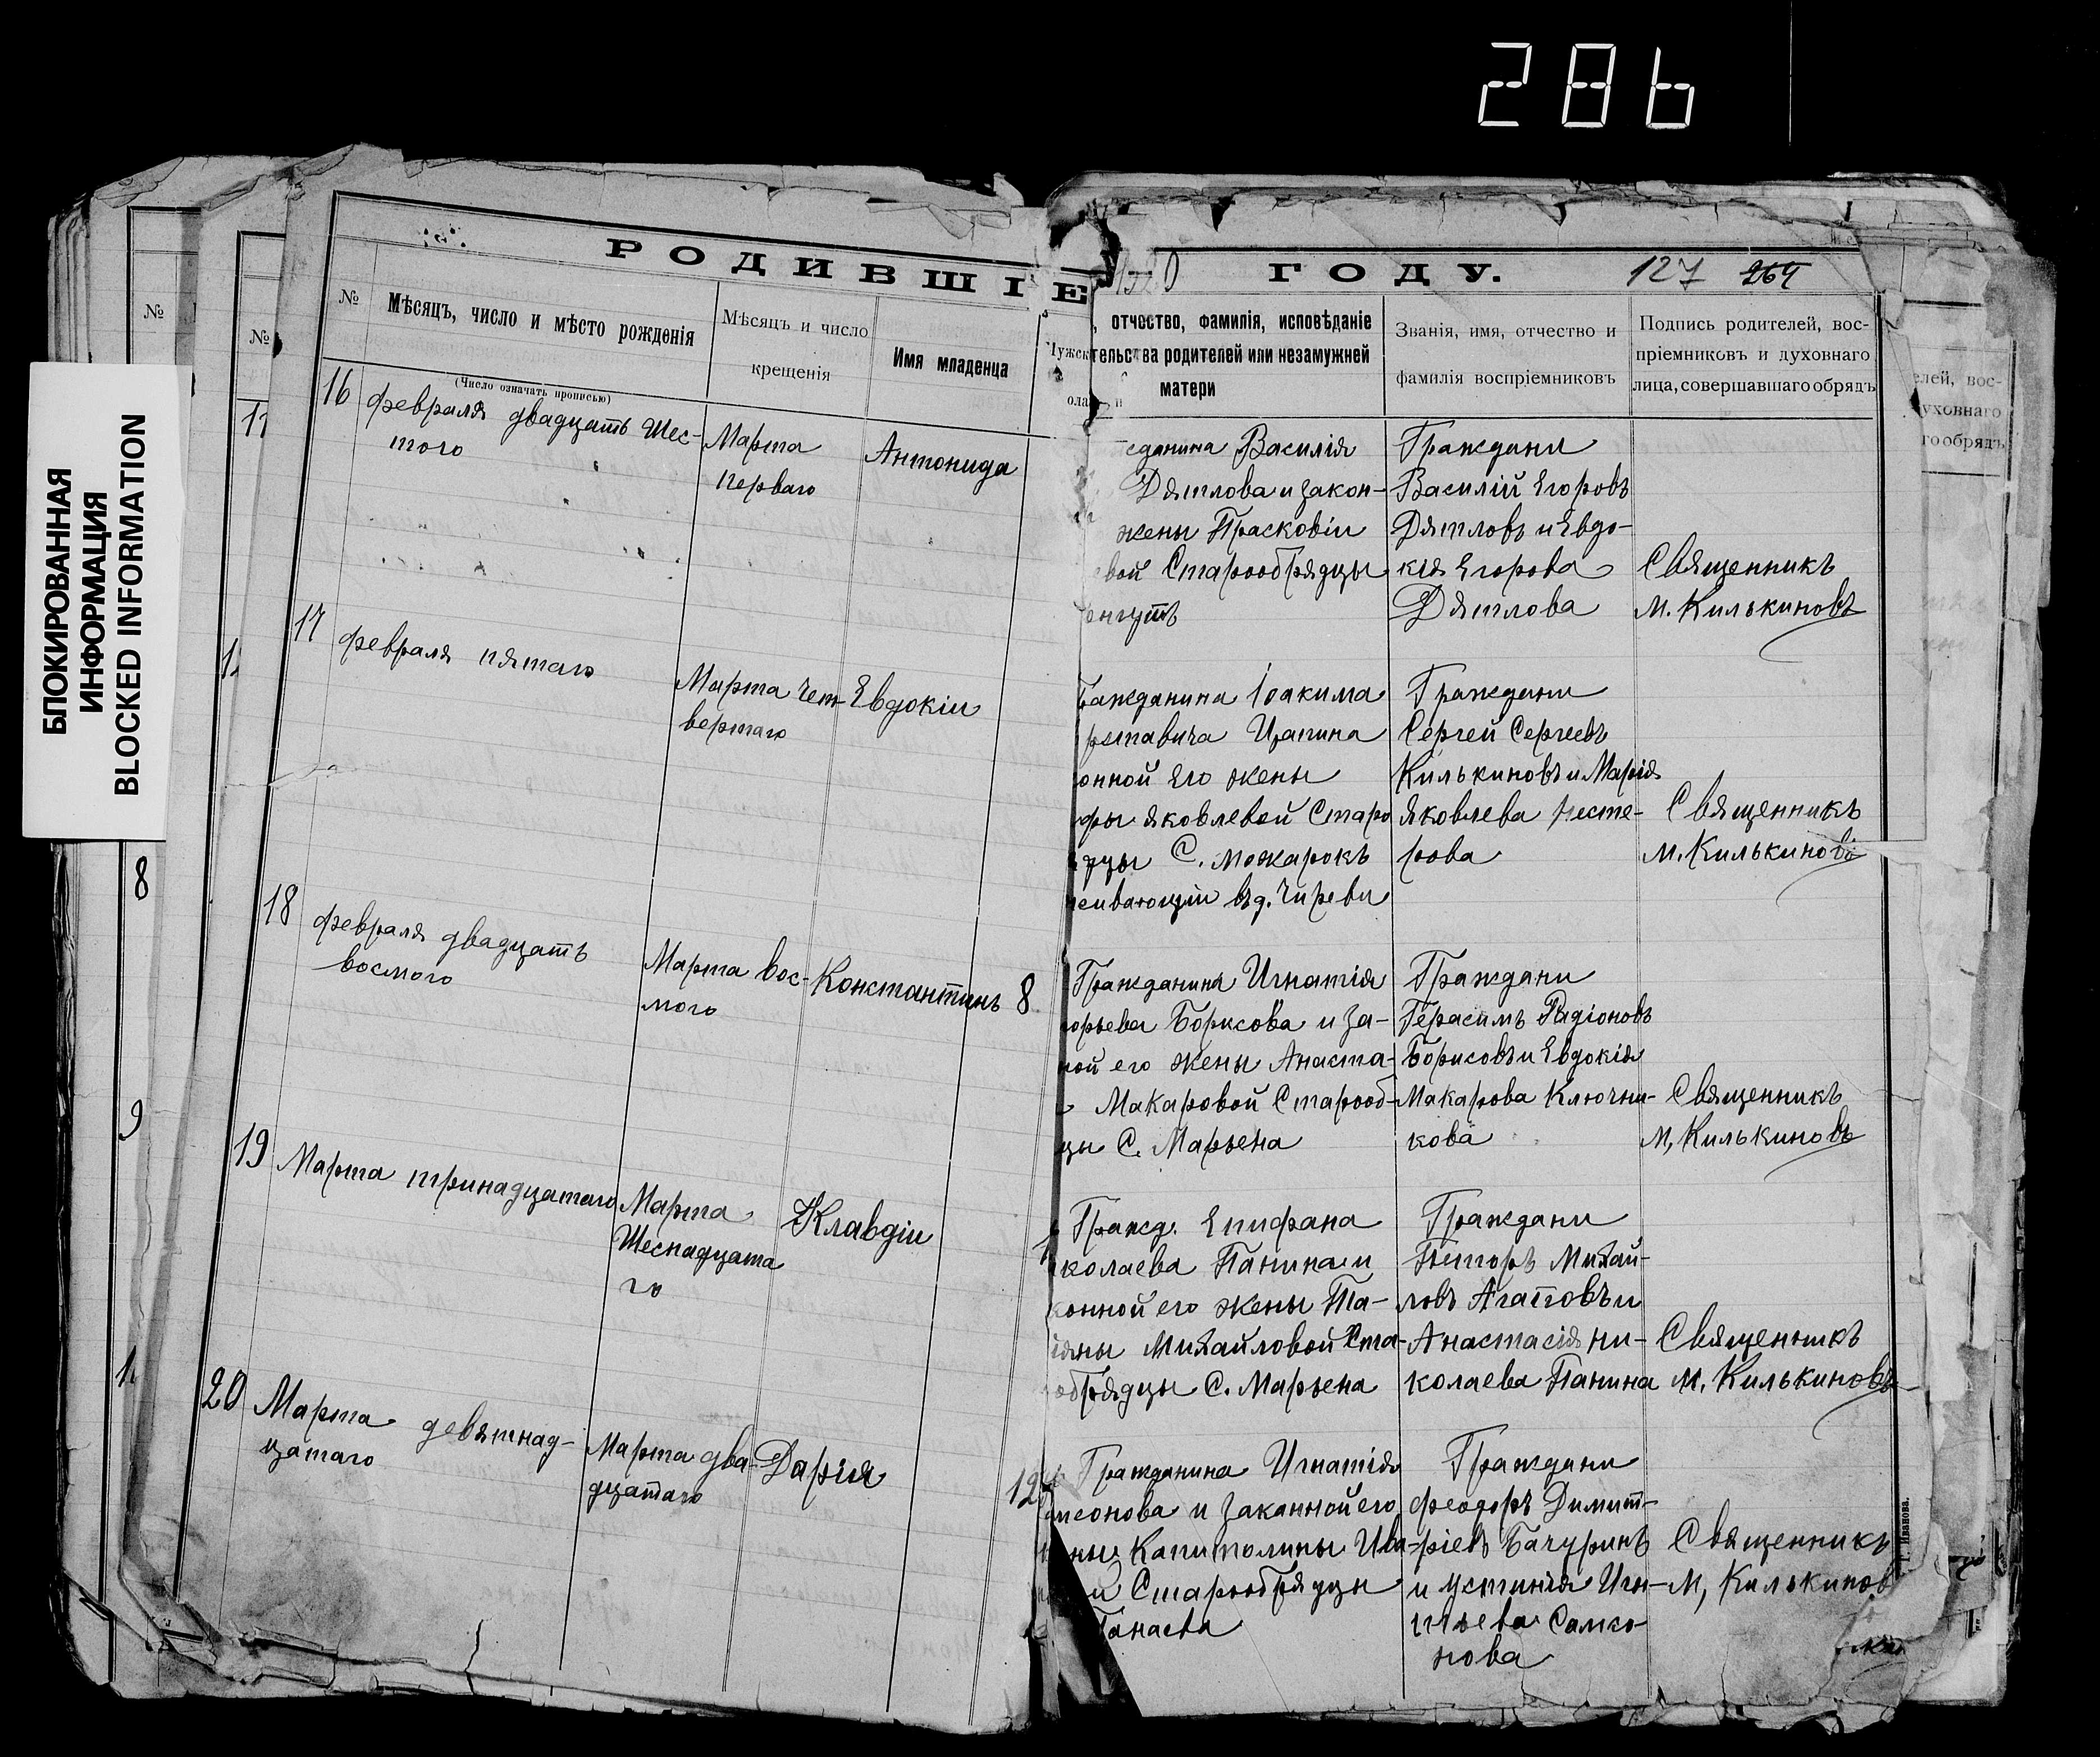 286
БЛОКИРОВАННАЯ
ИНФОРМАЦИЯ
BLOCKED INFORMATION
РОДИВШІЕ
ГОДУ.
127 264
№
№
№
Мѣсяцъ, число и мѣсто рожденія
(Число означать прописью)
Мѣсяцъ и число
крещенія
Имя младенца
, отчество, фамилія, исповѣданіе
тельства родителей или незамужней
матери
Званія, имя, отчество и
фамилія воспріемниковъ
Подпись родителей, вос-
пріемниковъ и духовнаго
лица, совершавшаго обрядъ
елей, вос-
уховнаго
го обрядъ
16
февраля двадцать шес-
таго
Марта
перваго
Антонида
жданина Василія
Дятлова и закон-
жены Прасковіи
евой Старообрядцы
Граждани
Василій Егоровъ
Дятловъ и Евдо-
кія Егорова
Дятлова
Священникъ
М. Килькиновъ
17
февраля пятаго
Марта чет-
вертаго
Евдокіи
ражданина Іоакима
Цапина
онной его жены
яковлевой Старо
дцы С. Можарокъ
Граждани
Сергей Сергеевъ
Килькиновъ и Марія
Яковлева Несте-
рова
Священникъ
М. Килькиновъ
18
февраля двадцать
восмого
Марта вос-
мого
Константинъ 8
Гражданина Игнатія
орьева Борисова и за-
ной его жены Анаста-
Макаровой Старооб-
цы С. Марьена
Граждани
Герасимъ Радіоновъ
Борисовъ и Евдокія
Макарова Ключни-
кова
Священникъ
М, Килькиновъ
19
Марта тринадцатаго
Марта
Шеснадцата
го
Клавдіи
Гражд. Епифана
колаева Панина и
конной его жены Та-
іяны Михайловой Ста-
обрядцы С. Марьена
Граждани
Михай-
ловъ Агаповъ и
Анастасія Ни-
колаева Панина
Священникъ
М. Килькиновъ
20
Марта девятнад-
цатаго
Марта два-
дцатаго
Дарія
12
Гражданина Игнатія
меонова и законной его
ны Капитолины Ива-
й Старообрядцы
Танаева
Граждани
Феодоръ Димит-
ріевъ Бачуринъ
и Устинія Игн-
тьева Самсо-
нова
Священникъ
М, Килькинов
8
9